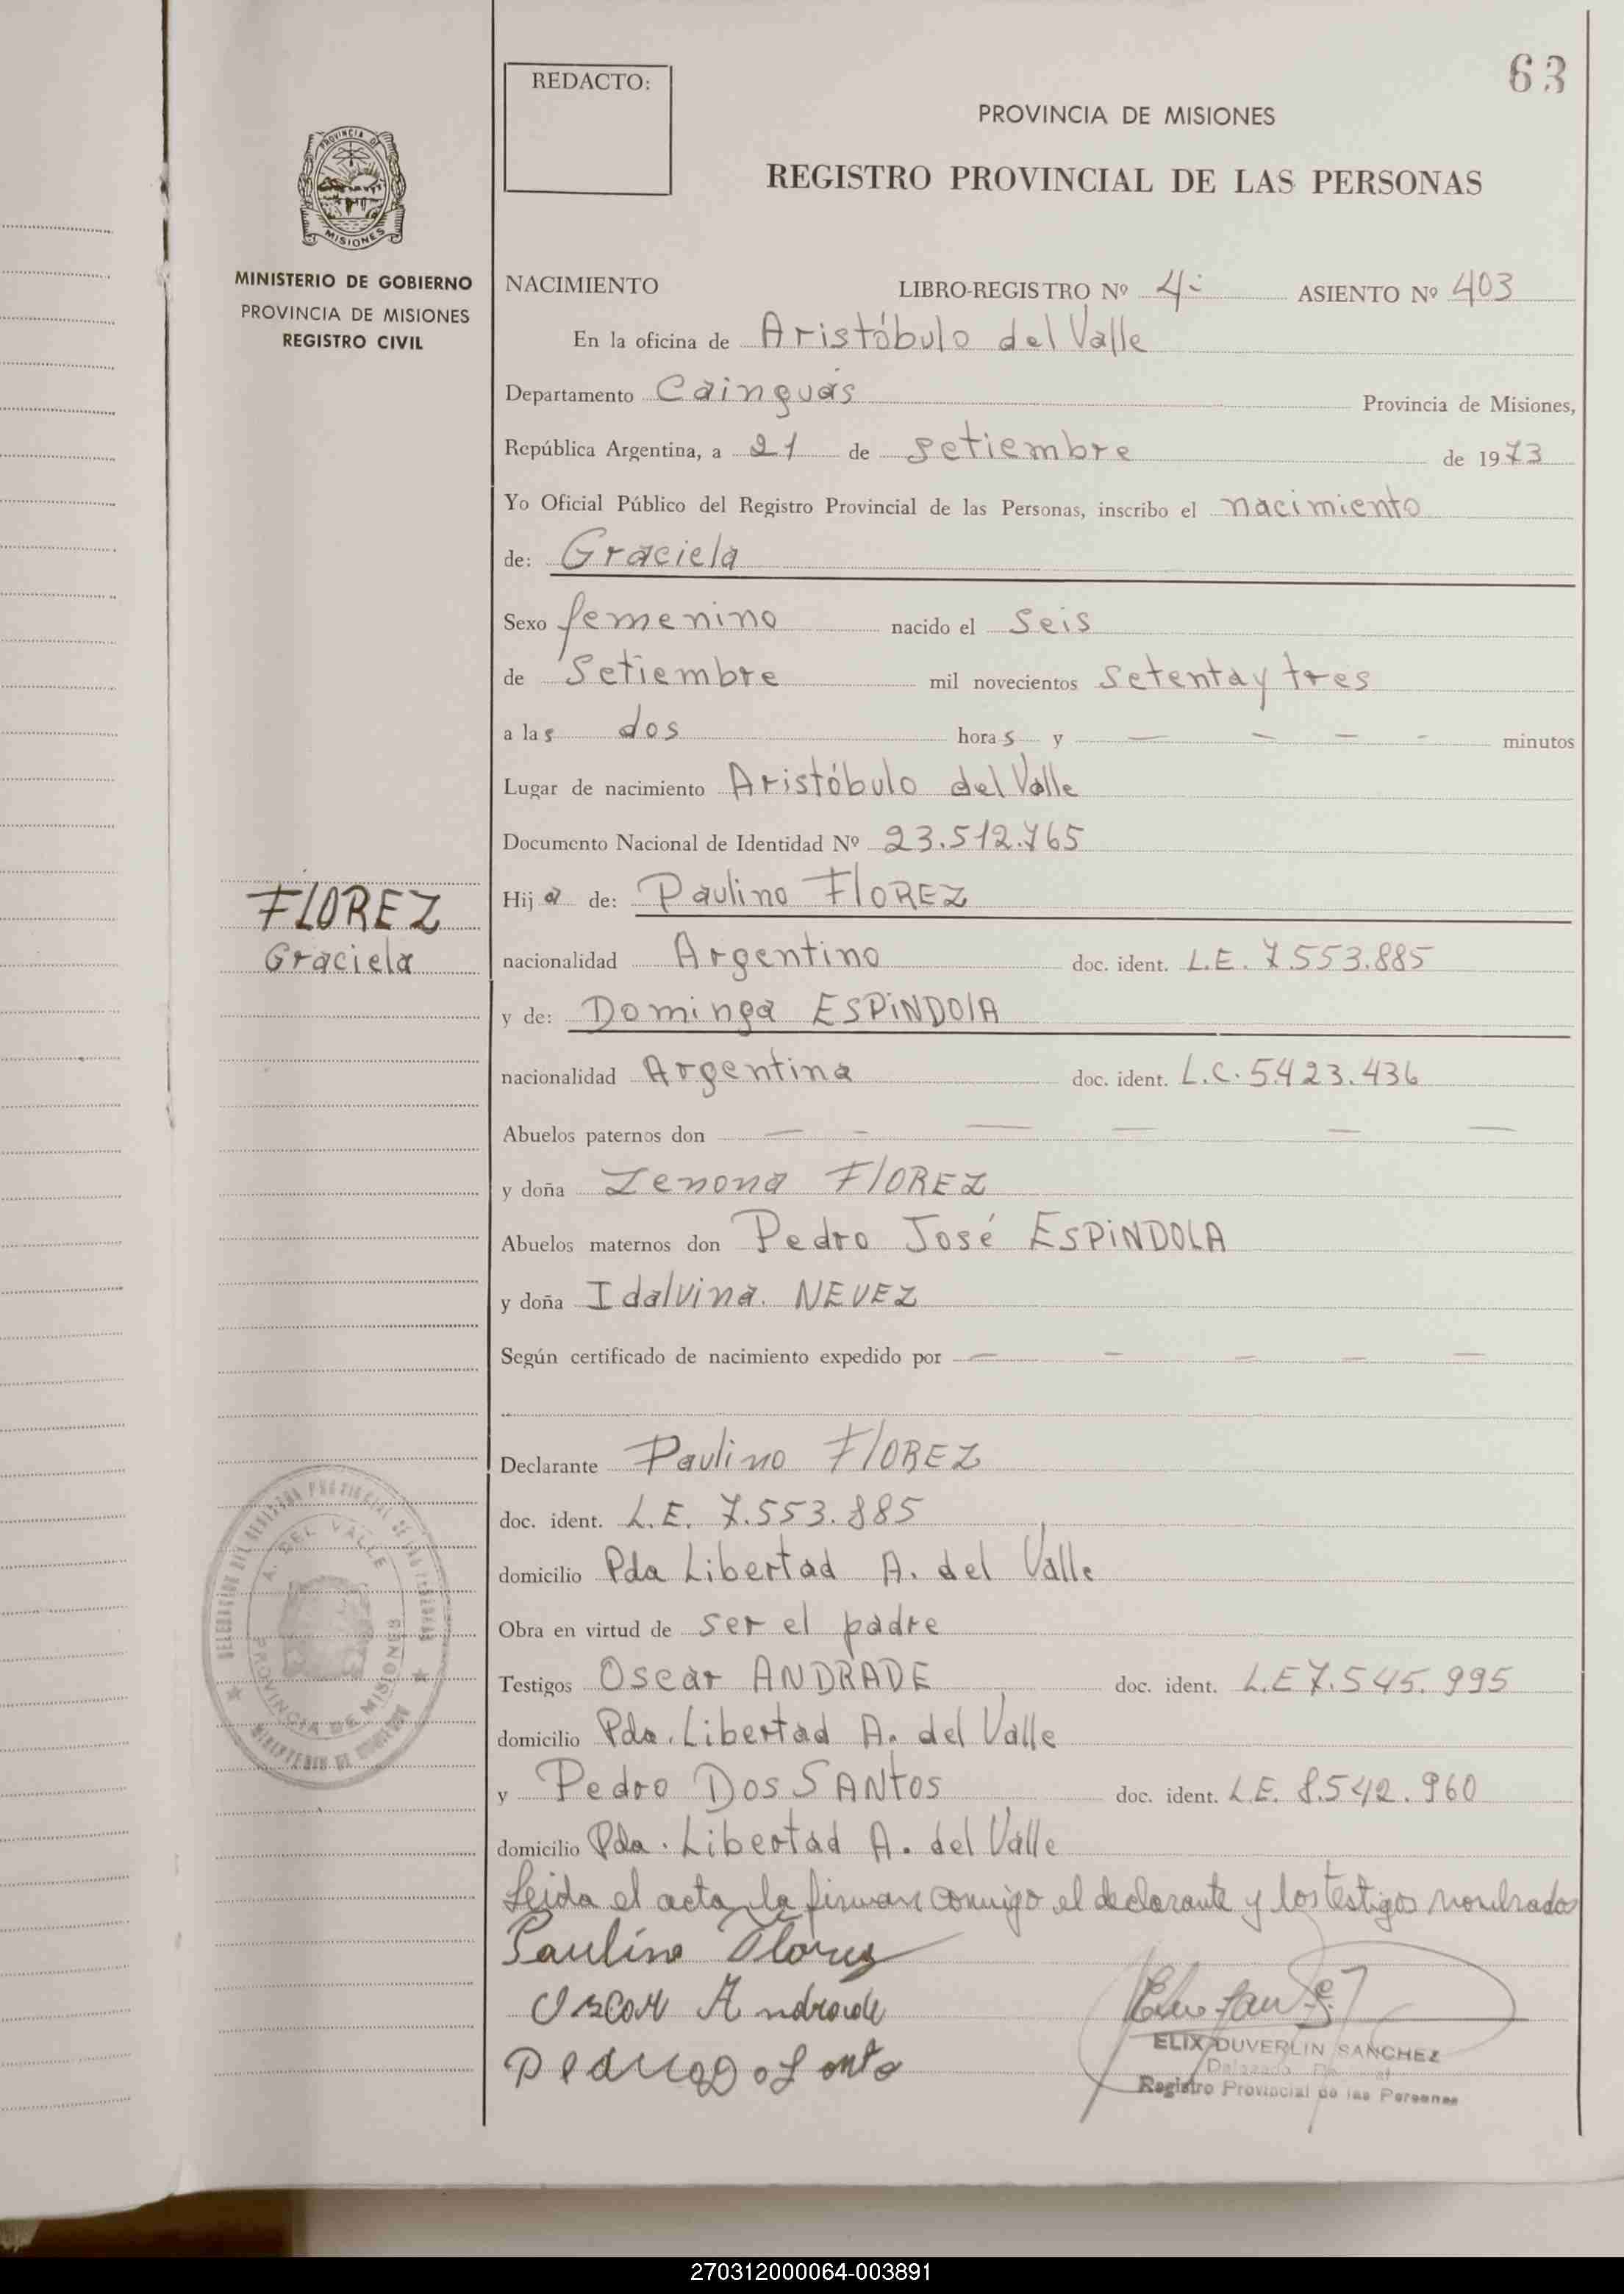 63
REDACTO:
PROVINCIA DE MISIONES
REGISTRO PROVINCIAL DE LAS PERSONAS
PROVINCIA DE
MISIONES
MINISTERIO DE GOBIERNO
PROVINCIA DE MISIONES
REGISTRO CIVIL
NACIMIENTO LIBRO-REGISTRO Nº 4: ASIENTO Nº 403
En la oficina de Aristóbulo del Valle
Departamento Cainguás Provincia de Misiones,
República Argentina, a 21 de setiembre de 1973
Yo Oficial Público del Registro Provincial de las Personas, inscribo el nacimiento
de: Graciela
Sexo femenino nacido el seis
de Setiembre mil novecientos setenta y tres
a las dos horas y — — — — minutos
Lugar de nacimiento Aristóbulo del Valle
Documento Nacional de Identidad Nº 23.512.765
FLOREZ
Graciela
Hija de: Paulino FLOREZ
nacionalidad Argentino doc. ident. L.E. 7.553.885
y de: Dominga ESPINDOLA
nacionalidad Argentina doc. ident. L.C. 5.423.436
Abuelos paternos don — — — — — —
y doña Zenona FLOREZ
Abuelos maternos don Pedro José ESPINDOLA
y doña Idalvina. NEVEZ
Según certificado de nacimiento expedido por — — — — —
Declarante Paulino FLOREZ
doc. ident. L.E. 7.553.885
domicilio Pda Libertad A. del Valle
Obra en virtud de ser el padre
Testigos Oscar ANDRADE doc. ident. L.E 7.545.995
domicilio Pda. Libertad A. del Valle
y Pedro DOS SANTOS doc. ident. L.E. 8.542.960
domicilio Pda. Libertad A. del Valle
Leida el acta, la firman conmigo el declarante y los testigos nombrados
Paulino Florez
Oscar Andrade
DELEGACION DEL REGISTRO PROVINCIAL DE LAS PERSONAS
A. DEL VALLE
PROVINCIA DE MISIONES
MINISTERIO DE GOBIERNO
ELIX DUVERLIN SANCHEZ
Registro Provincial de las Personas
270312000064-003891